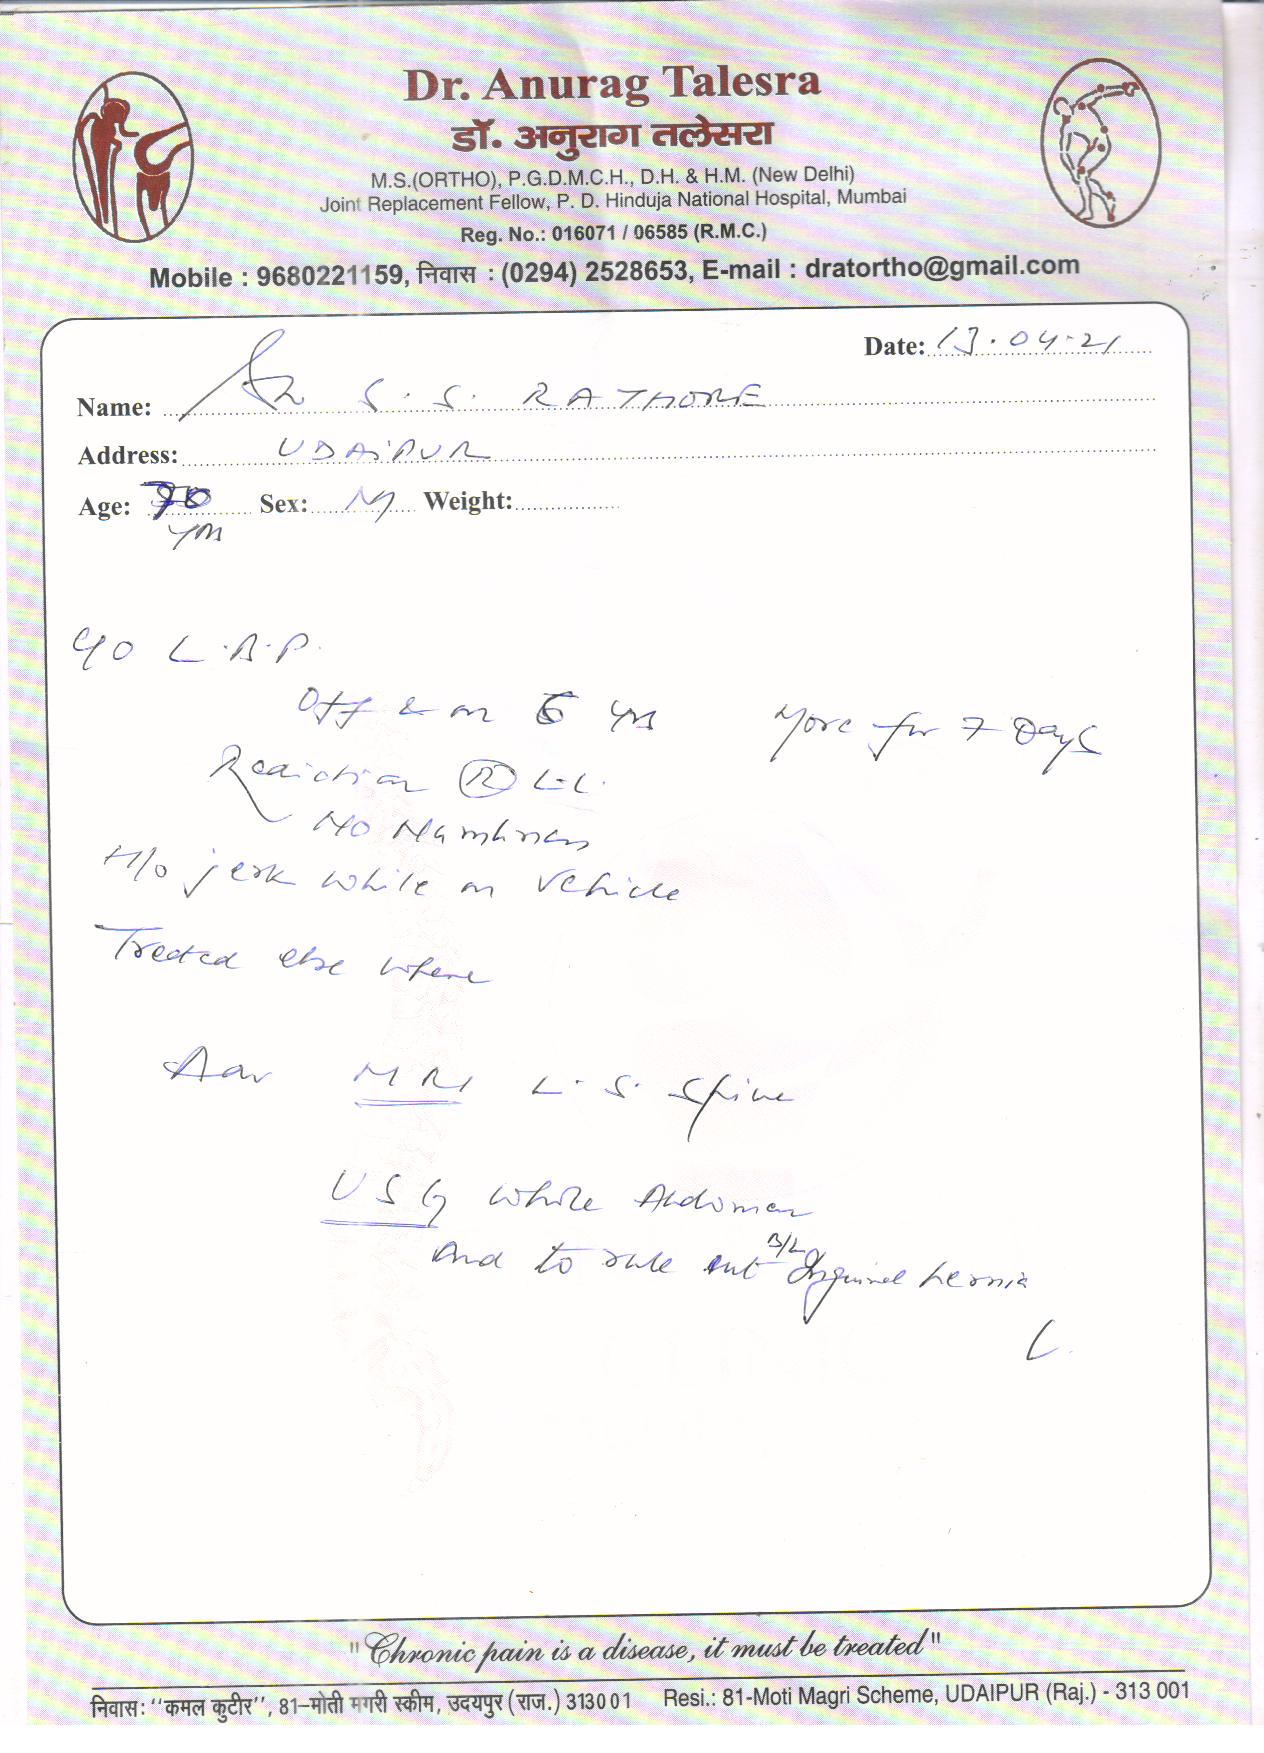 Dr. Anurag Talesra
डॉ. अनुराग तलेसरा
M.S.(ORTHO), P.G.D.M.C.H., D.H. & H.M. (New Delhi)
Joint Replacement Fellow, P. D. Hinduja National Hospital, Mumbai
Reg. No.: 016071 / 06585 (R.M.C.)
Mobile : 9680221159, निवास : (0294) 2528653, E-mail : dratortho@gmail.com
Date: 13.04.21
Name: S. S. RATHORE
Address: UDAIPUR
Age: 70 Sex: M Weight:
yrs
C/O L.B.P.
Off & on 5 yrs More for 7 Days
Radiation (R) L.L.
No Numbness
H/o jerk while on vehicle
Treated else where
Adv MRI L.S. Spine
USG Whole Abdomen
And to rule out B/L Inguinal hernia
"Chronic pain is a disease, it must be treated"
निवास: ''कमल कुटीर'', 81–मोती मगरी स्कीम, उदयपुर (राज.) 313001 Resi.: 81-Moti Magri Scheme, UDAIPUR (Raj.) - 313 001